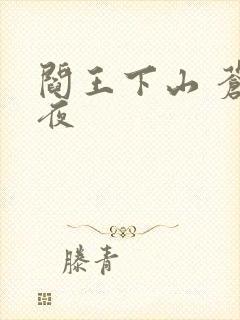 閻王下山 蒼
夜
滕青